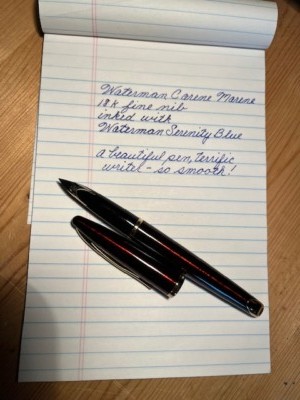 Waterman Carene Marene
18k fine nib
inked with
Waterman Serenity Blue
a beautiful pen, terrific
writer - so smooth!